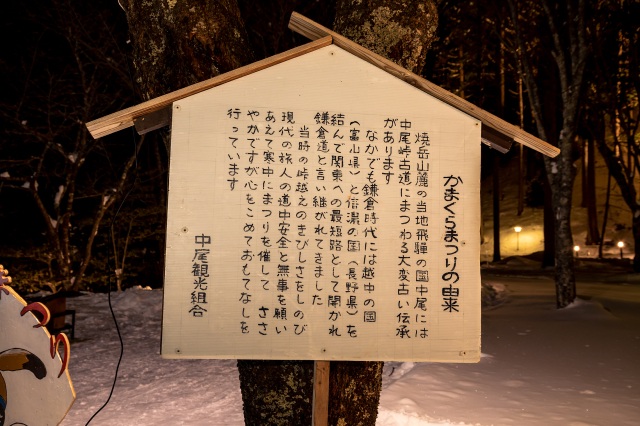 かまくらまつりの由来
焼岳山麓の当地飛騨の国中尾には
中尾峠古道にまつわる大変古い伝承
があります
なかでも鎌倉時代には越中の国
(富山県)と信濃の国(長野県)を
結んで関東への最短路として開かれ
鎌倉道と言い継がれてきました
当時の峠越えのきびしさをしのび
現代の旅人の道中安全と無事を願い
あえて寒中にまつりを催して ささ
やかですが心をこめておもてなしを
行っています
中尾観光組合